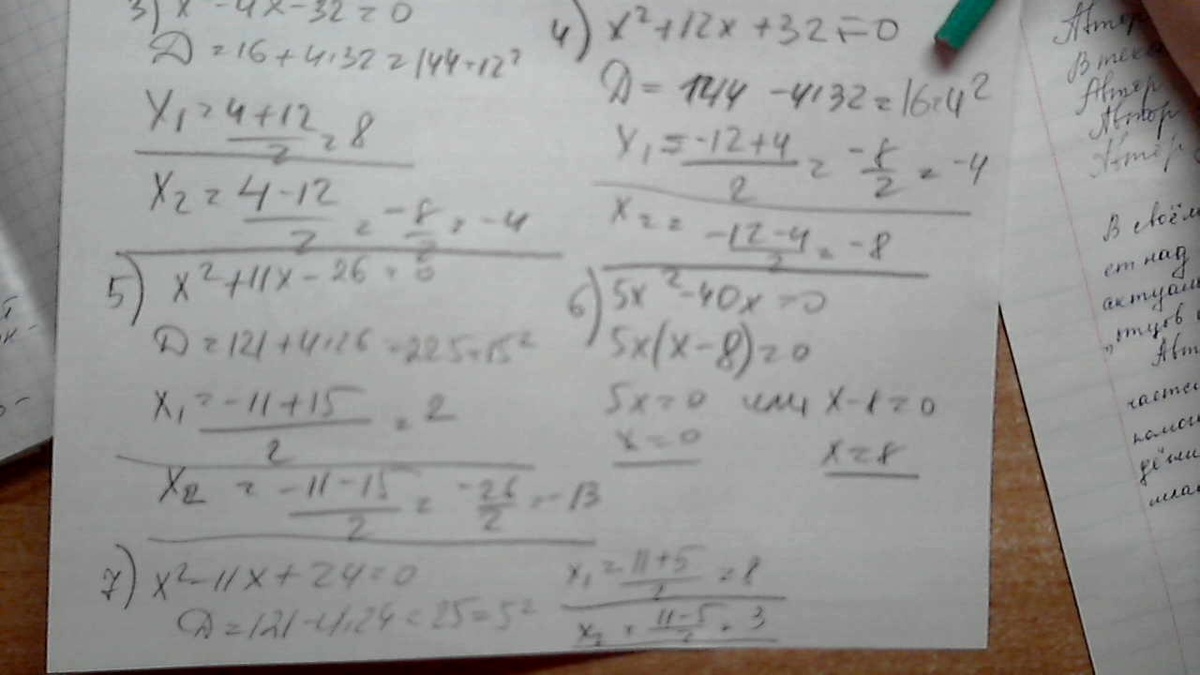 3) x² - 4x - 32 = 0
D = 16 + 4·32 = 144 = 12²
x₁ = (4+12)/2 = 8
x₂ = (4-12)/2 = -8/2 = -4
4) x² + 12x + 32 = 0
D = 144 - 4·32 = 16 = 4²
x₁ = (-12+4)/2 = -8/2 = -4
x₂ = (-12-4)/2 = -8
5) x² + 11x - 26 = 0
D = 121 + 4·26 = 225 = 15²
x₁ = (-11+15)/2 = 2
x₂ = (-11-15)/2 = -26/2 = -13
6) 5x² - 40x = 0
5x(x-8) = 0
5x = 0 или x-8 = 0
x = 0 x = 8
7) x² - 11x + 24 = 0
D = 121 - 4·24 = 25 = 5²
x₁ = (11+5)/2 = 8
x₂ = (11-5)/2 = 3
Автор
В текс
Автор
Автор
Автор
В своём
ет над
актуаль
отцов
Авт
частей
помощ